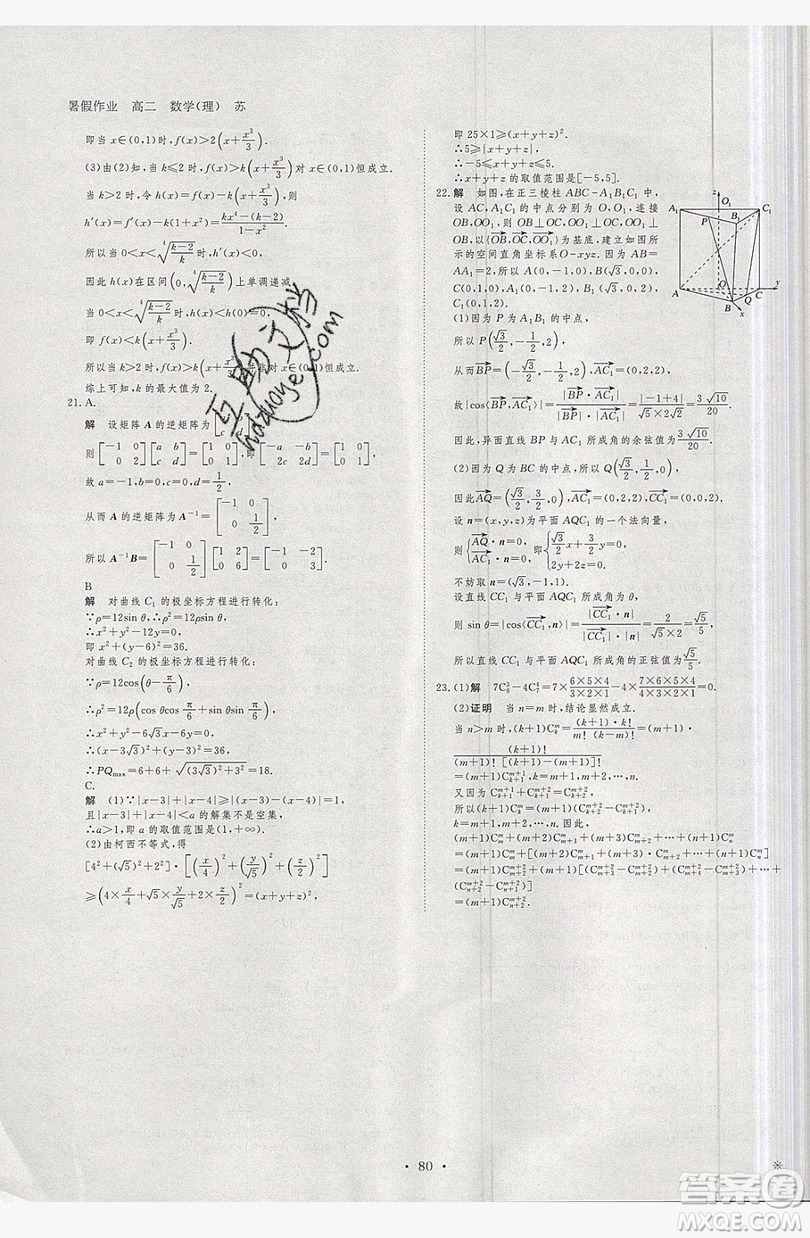 暑假作业 高二 数学(理) 苏
即当 x∈(0,1)时,f(x)>2(x+x³/3)
(3)由(2)知,当 k≤2 时,f(x)>k(x+x³/3)对 x∈(0,1)恒成立.
当 k>2 时,令 h(x)=f(x)-k(x+x³/3),则
h′(x)=f′(x)-k(1+x²)=(kx⁴-(k-2))/(1-x²).
所以当 0<x<⁴√((k-2)/k)时,h′(x)<0,
因此 h(x)在区间(0,⁴√((k-2)/k))上单调递减.
当 0<x<⁴√((k-2)/k)时,h(x)<h(0)=0,
即 f(x)<k(x+x³/3).
所以当 k>2 时,f(x)>k(x+x³/3)
对 x∈(0,1)恒成立.
综上可知,k 的最大值为 2.
21. A.
解 设矩阵 A 的逆矩阵为[a b; c d],
则[-1 0; 0 2][a b; c d]=[1 0; 0 1],即[-a -b; 2c 2d]=[1 0; 0 1],
故 a=-1,b=0,c=0,d=1/2,
从而 A 的逆矩阵为 A⁻¹=[-1 0; 0 1/2],
所以 A⁻¹B=[-1 0; 0 1/2][1 2; 0 6]=[-1 -2; 0 3].
B
解 对曲线 C₁ 的极坐标方程进行转化:
∵ρ=12sin θ,∴ρ²=12ρsin θ,
∴x²+y²-12y=0,
即 x²+(y-6)²=36.
对曲线 C₂ 的极坐标方程进行转化:
∵ρ=12cos(θ-π/6),
∴ρ²=12ρ(cos θcos π/6+sin θsin π/6),
∴x²+y²-6√3x-6y=0,
∴(x-3√3)²+(y-3)²=36,
∴PQmax=6+6+√((3√3)²+3²)=18.
C.
解 (1)∵|x-3|+|x-4|≥|(x-3)-(x-4)|=1,
且|x-3|+|x-4|<a 的解集不是空集,
∴a>1,即 a 的取值范围是(1,+∞).
(2)由柯西不等式,得
[4²+(√5)²+2²]·[(x/4)²+(y/√5)²+(z/2)²]
≥(4×x/4+√5×y/√5+2×z/2)²=(x+y+z)²,
即 25×1≥(x+y+z)².
∴5≥|x+y+z|,
∴-5≤x+y+z≤5.
∴x+y+z 的取值范围是[-5,5].
22.解 如图,在正三棱柱 ABC-A₁B₁C₁ 中,
设 AC,A₁C₁ 的中点分别为 O,O₁,连接
OB,OO₁,则 OB⊥OC,OO₁⊥OC,OO₁⊥
OB,以{OB,OC,OO₁}为基底,建立如图所
示的空间直角坐标系 O-xyz.因为 AB=
AA₁=2,所以 A(0,-1,0),B(√3,0,0),
C(0,1,0),A₁(0,-1,2),B₁(√3,0,2),
C₁(0,1,2).
z
O₁
A₁
C₁
P
B₁
A
O
C
y
B
Q
x
(1)因为 P 为 A₁B₁ 的中点,
所以 P(√3/2,-1/2,2),
从而BP=(-√3/2,-1/2,2),AC₁=(0,2,2),
故|cos⟨BP,AC₁⟩|=|BP·AC₁|/(|BP|·|AC₁|)=|-1+4|/(√5×2√2)=3√10/20.
因此,异面直线 BP 与 AC₁ 所成角的余弦值为3√10/20.
(2)因为 Q 为 BC 的中点,所以 Q(√3/2,1/2,0),
因此AQ=(√3/2,3/2,0),AC₁=(0,2,2),CC₁=(0,0,2).
设 n=(x,y,z)为平面 AQC₁ 的一个法向量,
则{AQ·n=0, AC₁·n=0,即{√3/2x+3/2y=0, 2y+2z=0.
不妨取 n=(√3,-1,1).
设直线 CC₁ 与平面 AQC₁ 所成角为 θ,
则 sin θ=|cos⟨CC₁,n⟩|=|CC₁·n|/(|CC₁|·|n|)=2/(√5×2)=√5/5,
所以直线 CC₁ 与平面 AQC₁ 所成角的正弦值为√5/5.
23.(1)解 7C₆³-4C₇⁴=7×(6×5×4)/(3×2×1)-4×(7×6×5×4)/(4×3×2×1)=0.
(2)证明 当 n=m 时,结论显然成立.
当 n>m 时,(k+1)Cₖᵐ=(k+1)·k!/(m!(k-m)!)=
(m+1)·(k+1)!/((m+1)![(k+1)-(m+1)]!)=
(m+1)Cₖ₊₁ᵐ⁺¹,k=m+1,m+2,…,n.
又因为 Cₖ₊₁ᵐ⁺¹+Cₖ₊₁ᵐ⁺²=Cₖ₊₂ᵐ⁺²,
所以(k+1)Cₖᵐ=(m+1)(Cₖ₊₂ᵐ⁺²-Cₖ₊₁ᵐ⁺²),
k=m+1,m+2,…,n.
因此,(m+1)Cₘᵐ+(m+2)Cₘ₊₁ᵐ+(m+3)Cₘ₊₂ᵐ+…+(n+1)Cₙᵐ
=(m+1)Cₘᵐ+[(m+2)Cₘ₊₁ᵐ+(m+3)Cₘ₊₂ᵐ+…+(n+1)Cₙᵐ]
=(m+1)Cₘ₊₂ᵐ⁺²+(m+1)[(Cₘ₊₃ᵐ⁺²-Cₘ₊₂ᵐ⁺²)+(Cₘ₊₄ᵐ⁺²-Cₘ₊₃ᵐ⁺²)+…+
(Cₙ₊₂ᵐ⁺²-Cₙ₊₁ᵐ⁺²)]
=(m+1)Cₙ₊₂ᵐ⁺².
互助文档
hdzuoye.com
· 80 ·
答案圈
MXQE.COM